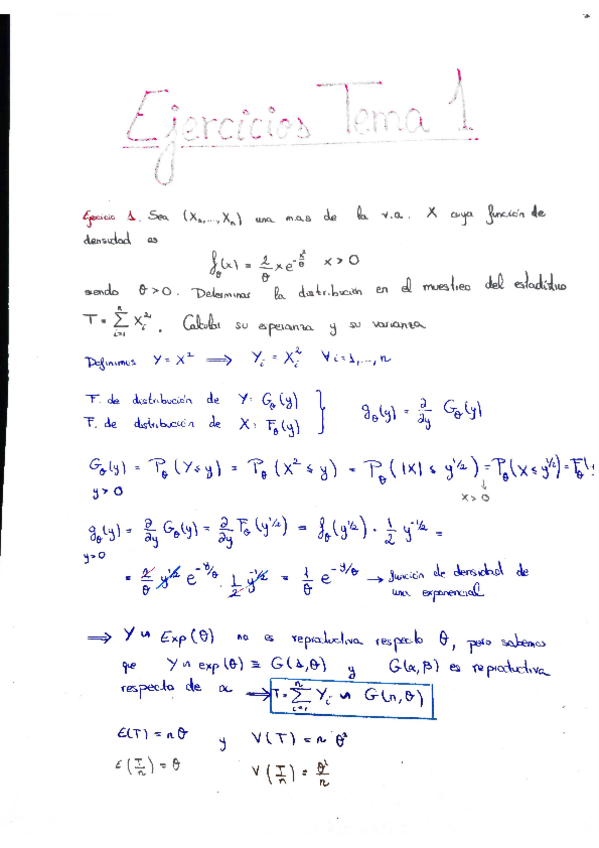 Ejercicios Tema 1
Ejercicio 1. Sea (X₁,...,Xₙ) una m.a.s de la v.a. X cuya función de
densidad es
f_θ(x) = 2/θ x e^(-x²/θ) x > 0
siendo θ > 0. Determinar la distribución en el muestreo del estadístico
T = Σ_{i=1}^{n} X_i². Calcular su esperanza y su varianza
Definimos Y = X² ⟹ Y_i = X_i² ∀ i = 1,...,n
F. de distribución de Y: G_θ(y)
F. de distribución de X: F_θ(y) } g_θ(y) = ∂/∂y G_θ(y)
G_θ(y) = P_θ(Y ≤ y) = P_θ(X² ≤ y) = P_θ(|X| ≤ y^(1/2)) = P_θ(X ≤ y^(1/2)) = F_θ(y
y > 0 ↓ x > 0
g_θ(y) = ∂/∂y G_θ(y) = ∂/∂y F_θ(y^(1/2)) = f_θ(y^(1/2)) · 1/2 y^(-1/2) =
y > 0
= 2/θ y^(1/2) e^(-y/θ) · 1/2 y^(-1/2) = 1/θ e^(-y/θ) → función de densidad de
una exponencial
⟹ Y ~ Exp(θ) no es reproductiva respecto θ, pero sabemos
que Y ~ exp(θ) ≡ G(1,θ) y G(α,β) es reproductiva
respecto de α ⟹ T = Σ_{i=1}^{n} Y_i ~ G(n,θ)
E(T) = nθ y V(T) = n θ²
E(T/n) = θ V(T/n) = θ²/n